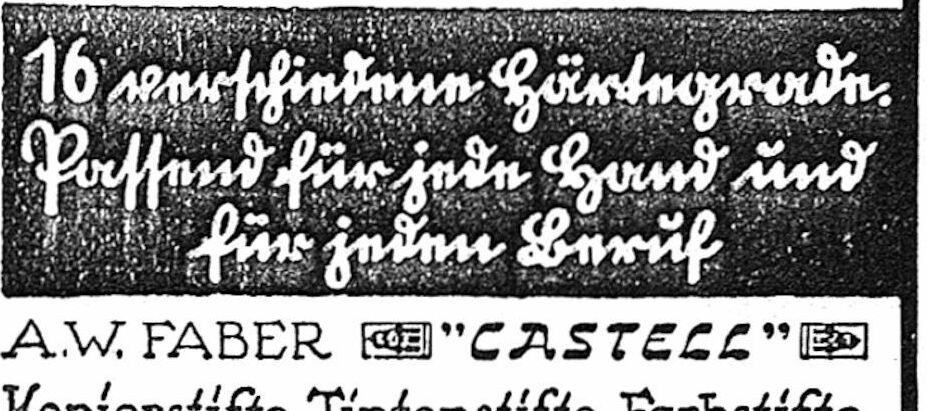 16 verschiedene Härtegrade.
Passend für jede Hand und
für jeden Beruf
A.W. FABER "CASTELL"
Kopierstifte Tintenstifte Farbstifte